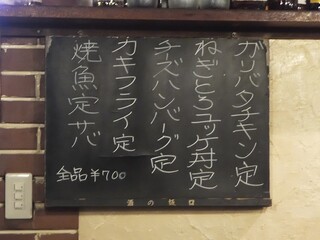 ガリバタチキン定
ねぎとろユッケ丼定
チーズハンバーグ定
カキフライ定
焼魚定サバ
全品¥700